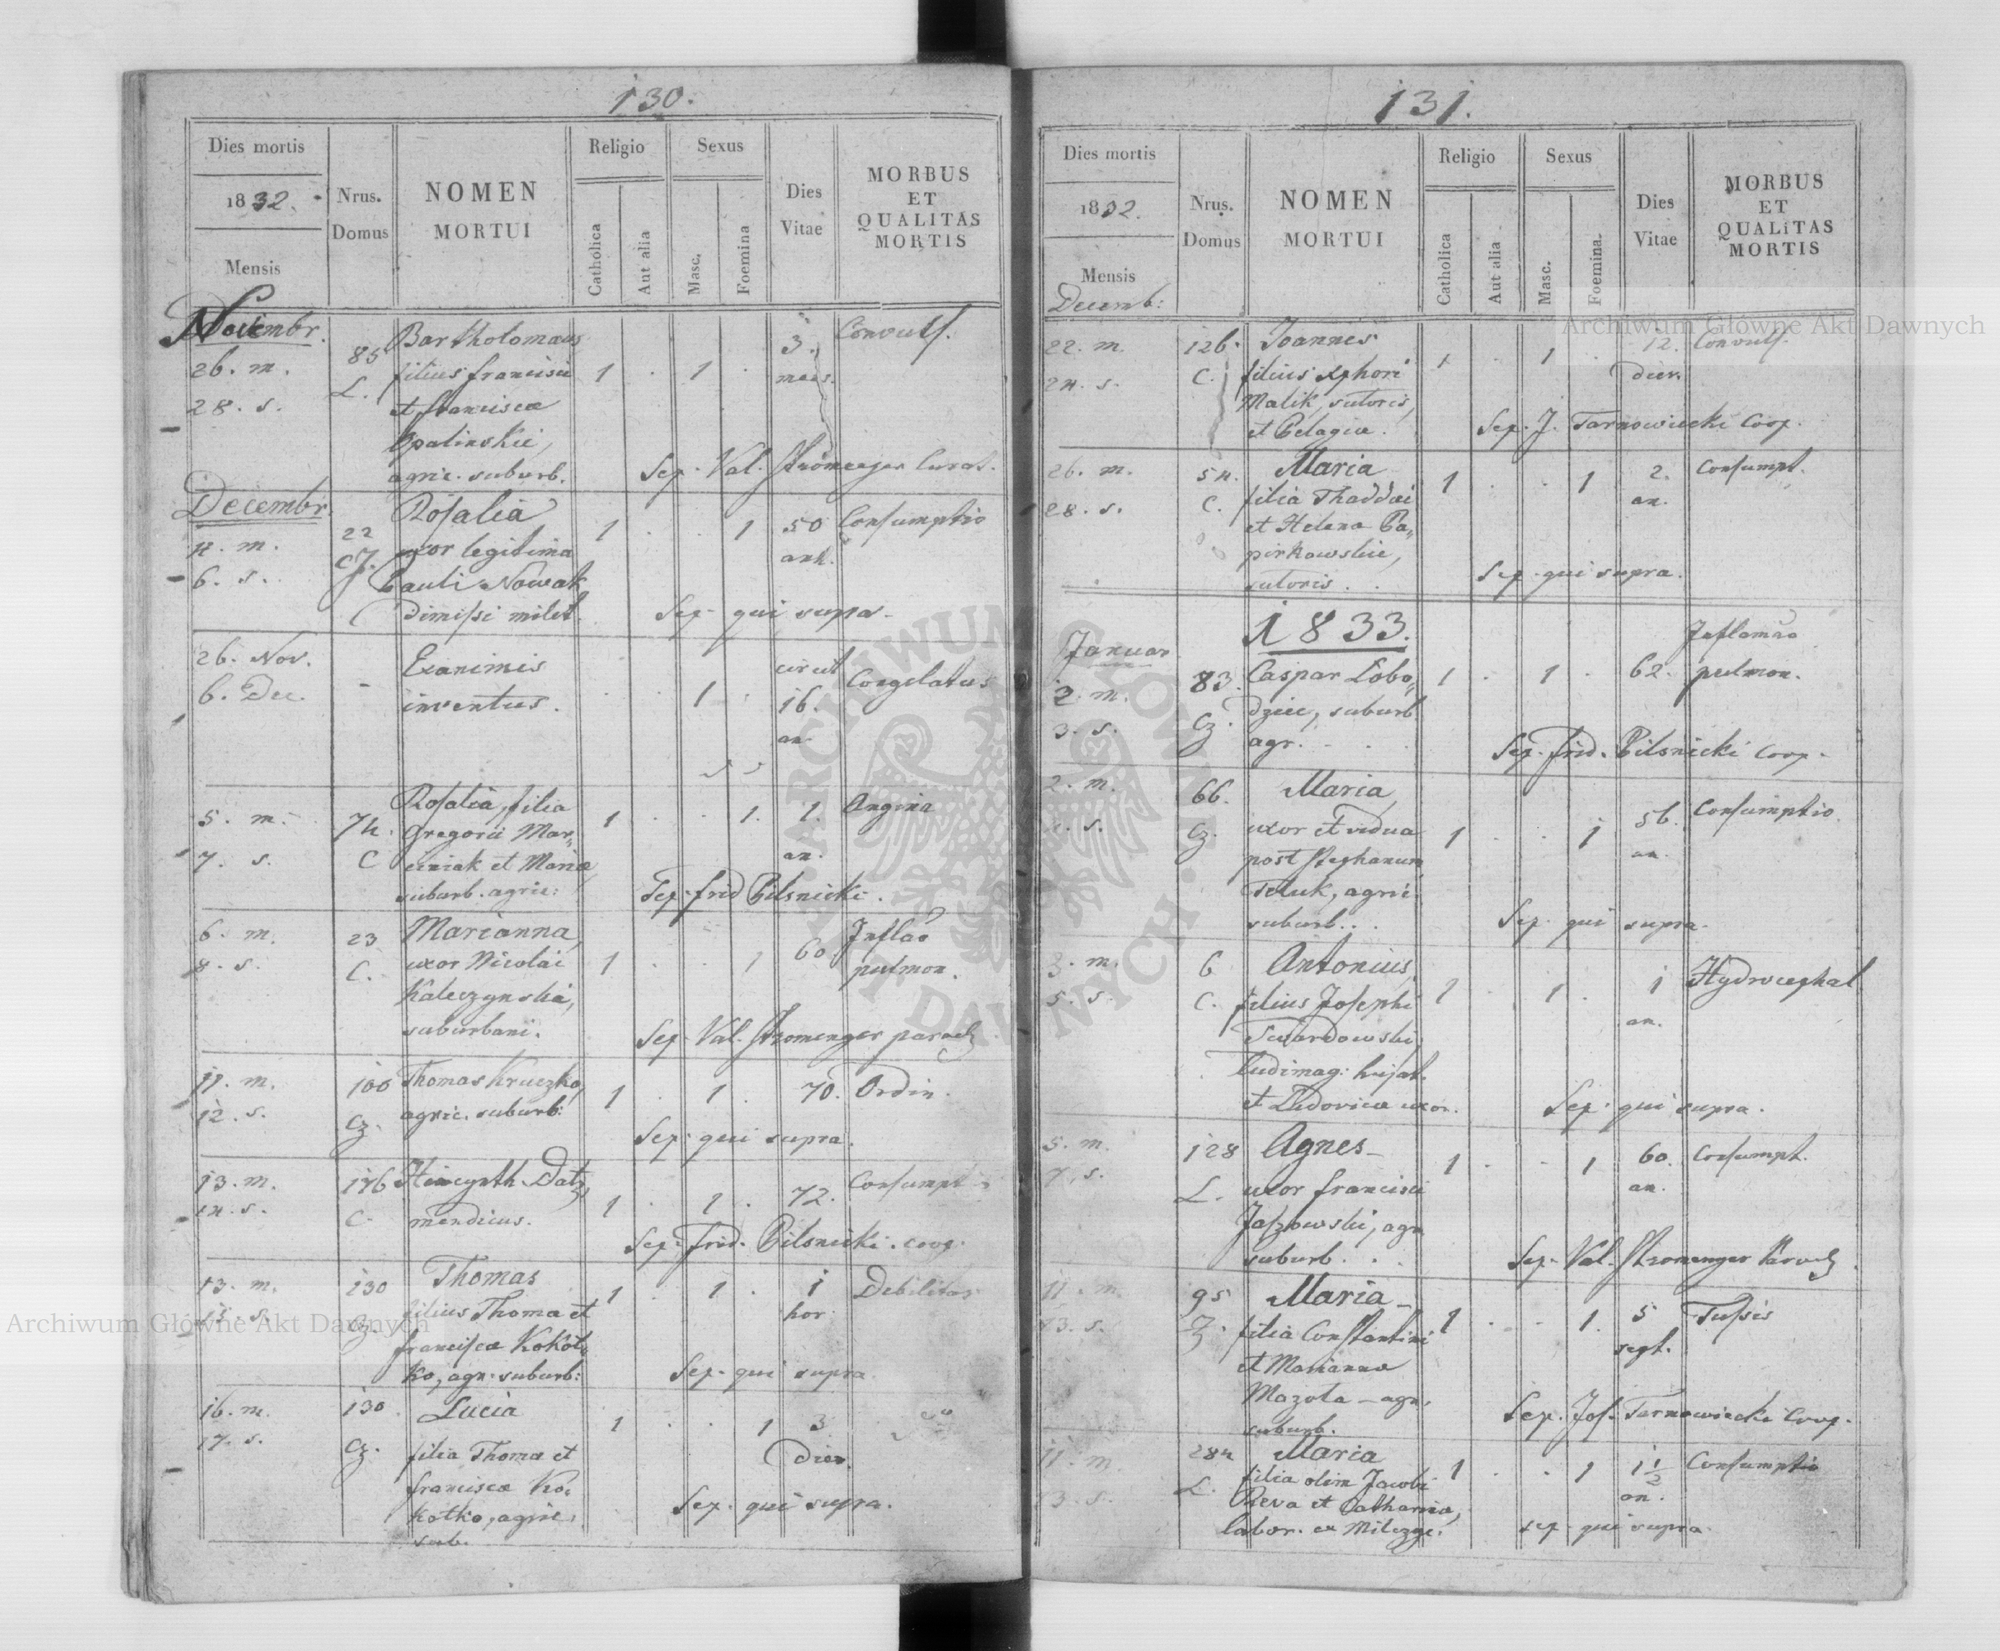 130.
Dies mortis
1832.
Mensis
Nrus.
Domus
NOMEN
MORTUI
Religio
Catholica
Aut alia
Sexus
Masc.
Foemina
Dies
Vitae
MORBUS
ET
QUALITAS
MORTIS
Novembr.
26. m.
28. s.
85
L.
Bartholomaus
filius francisci
et francisca
Opalinskie,
agric. suburb.
1 . 1 .
3.
mens.
Convuls.
Sep. Val. Stromenger Curat.
Decembr.
4. m.
6. s.
22
Rosalia
uxor legitima
Pauli Nowak
dimissi milit.
1 . . 1
50
ann.
Consumptio
Sep. qui supra.
26. Nov.
6. Dec.
-
Exanimis
inventus.
. . 1
circit
16.
an.
Congelatus
5. m.
7. s.
74.
C
Rosalia, filia
Gregorii Mar,
ciniak et Maria
suburb. agric:
1 . . 1.
1.
an.
Angina
Sep. frid Pilsnicki.
6. m.
8. s.
23
C.
Marianna,
uxor Nicolai
Kaleczynskia,
suburbani.
1 . . 1
60
Inflao
pulmon.
Sep. Val. Stromenger paroch
11. m.
12. s.
100
Cz.
Thomas Kruczko,
agric. suburb:
1 . 1 .
70.
Ordin.
Sep. qui supra.
13. m.
14. s.
176
C.
Hiacynth Datz,
mendicus.
1 . 1 .
72.
Consumpt
Sep: Frid. Pilsnicki. coop.
13. m.
15. s.
130
Cz.
Thomas
filius Thoma et
francisca Kokot,
ko, agr. suburb:
1 . 1 .
1
hor.
Debilitas
Sep. qui supra
16. m.
17. s.
130
Cz.
Lucia
filia Thoma et
francisca Ko,
kotko, agric,
sub.
1 . . 1
3
dier.
Sep. qui supra.
131.
Dies mortis
1832.
Mensis
Decemb:
Nrus.
Domus
NOMEN
MORTUI
Religio
Catholica
Aut alia
Sexus
Masc.
Foemina.
Dies
Vitae
MORBUS
ET
QUALITAS
MORTIS
22. m.
24. s.
126.
C.
Joannes
filius Xphori
Malik, sutoris,
et Pelagia.
1 . 1 .
12.
dier.
Convuls.
Sep. J. Tarnowiecki Coop.
26. m.
28. s.
54.
C.
Maria
filia Thaddai
et Helena Pa,
pirkowskie,
sutoris . .
1 . . 1
2.
an.
Consumpt.
Sep. qui supra.
1833.
Januar
2. m.
3. s.
83.
Cz.
Caspar Lobo,
dziec, suburb
agr. . . .
1 . 1 .
62.
Inflamao
pulmon.
Sep. frid. Pilsnicki coop.
2. m.
66.
Cz.
Maria,
uxor et vidua
post Stephanum
Teluk, agric.
suburb. . .
1 . . 1
56.
an.
Consumptio.
Sep. qui supra.
3. m.
5. s.
6
C.
Antonius,
filius Josephi
Twardowski,
Ludimag: hujat.
et Ludovica uxor.
1 . 1 .
1
an.
Hydrocephal
Sep. qui supra.
5. m.
7. s.
128
L.
Agnes
uxor francisci
Jaszowski, agr
suburb . .
1 . . 1
60.
an.
Consumpt.
Sep. Val. Stromenger Paroch.
11. m.
13. s.
95
Maria
filia Constantini
et Marianna
Mazola - agr.
suburb.
1 . . 1.
5
sept.
Tussis
Sep. Jos. Tarnowiecki Coop.
11. m
13. s.
284
L.
Maria
filia olim Jacobi
Reva et Catharina,
labor. ex Milczyc.
1 . . 1
1 1/2
an.
Consumptio
sep. qui supra.
Archiwum Główne Akt Dawnych
Archiwum Główne Akt Dawnych
ARCHIWUM GŁÓWNE AKT DAWNYCH